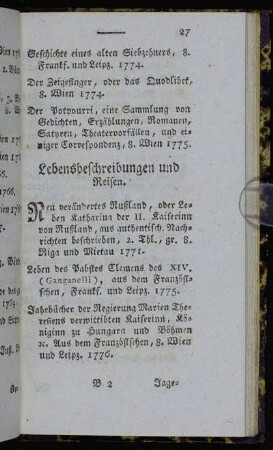 27
Geschichte eines alten Siebzehners, 8.
Frankf. und Leipz. 1774.
Der Zeigefinger, oder das Quodlibet,
8. Wien 1774.
Der Potpourri, eine Sammlung von
Gedichten, Erzählungen, Romanen,
Satyren, Theatervorfällen, und ei-
niger Correspondenz, 8. Wien 1775.
Lebensbeschreibungen und
Reisen.
Neu verändertes Rußland, oder Le-
ben Katharina der II. Kaiserinn
von Rußland, aus authentisch. Nach-
richten beschrieben, 2. Thl., gr. 8.
Riga und Mietau 1771.
Leben des Pabstes Clemens des XIV.
(Ganganelli), aus dem Französi-
schen, Frankf. und Leipz. 1775.
Jahrbücher der Regierung Marien The-
resiens verwittibten Kaiserinn, Kö-
niginn zu Hungarn und Böhmen
ꝛc. Aus dem Französischen, 8. Wien
und Leipz. 1776.
B 2
Jage-